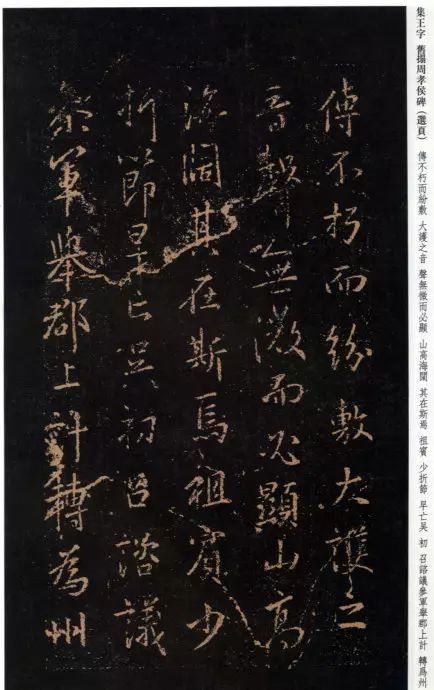 集王字 舊搨周孝侯碑（選頁） 傳不朽而紛敷 大濩之音 聲無微而必顯 山高海闊 其在斯焉 祖賓 少折節 早亡吳 初 召諮議參軍舉郡上計 轉爲州
傳不朽而紛敷大濩之
音聲無微而必顯山高
海闊其在斯焉祖賓少
折節早亡吳初召諮議
參軍舉郡上計轉為州